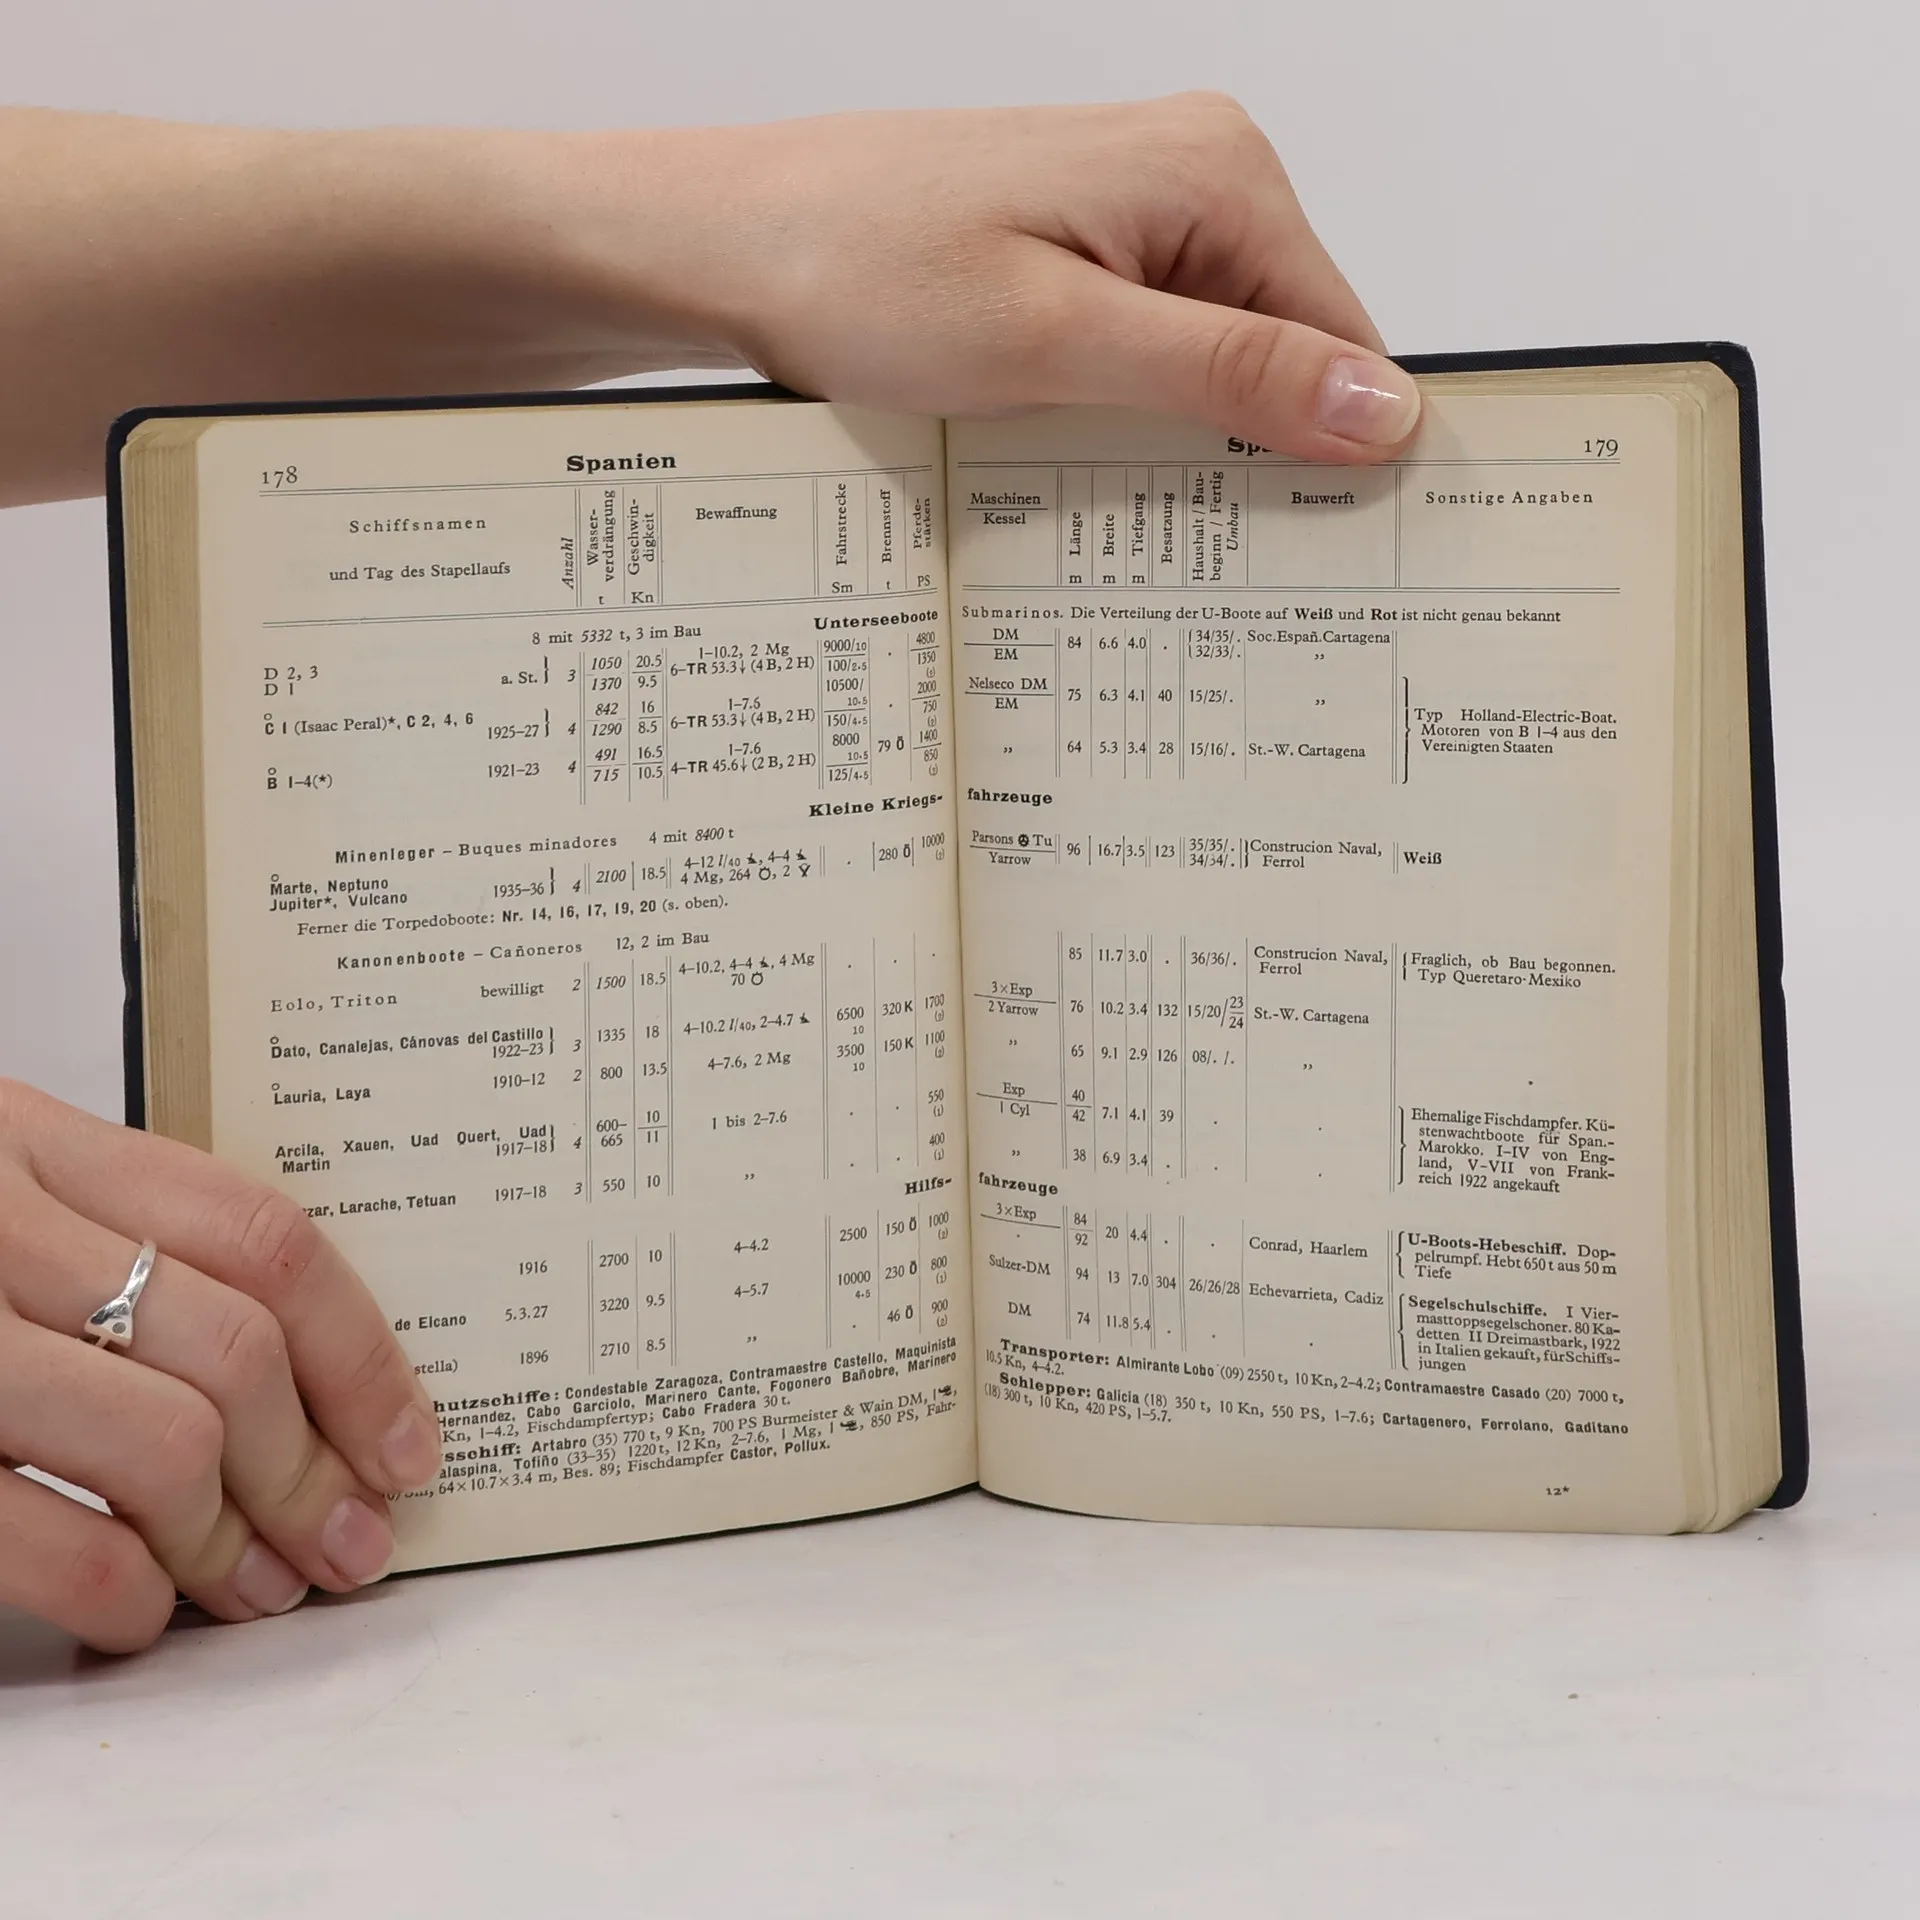 178
Spanien
Schiffsnamen
und Tag des Stapellaufs
Anzahl
Wasser-
verdrängung
t
Geschwin-
digkeit
Kn
Bewaffnung
Fahrstrecke
Sm
Brennstoff
t
Pferde-
stärken
PS
Unterseeboote
8 mit 5332 t, 3 im Bau
D 2, 3
D 1
a. St. } 3 1050 20.5 1–10.2, 2 Mg 9000/10 . 4800
1370 9.5 6–TR 53.3↓ (4 B, 2 H) 100/2.5 1350
(2)
C 1 (Isaac Peral)*, C 2, 4, 6
1925–27 } 4 842 16 1–7.6 10500/ 10.5 . 2000
1290 8.5 6–TR 53.3↓ (4 B, 2 H) 150/4.5 750
(2)
B 1–4(*) 1921–23 4 491 16.5 1–7.6 8000 10.5 79 Ö 1400
715 10.5 4–TR 45.6↓ (2 B, 2 H) 125/4.5 850
(2)
Kleine Kriegs-
Minenleger – Buques minadores 4 mit 8400 t
Marte, Neptuno
Jupiter*, Vulcano 1935–36 } 4 2100 18.5 4–12 l/40, 4–4 . 280 Ö 10000
4 Mg, 264, 2 (2)
Ferner die Torpedoboote: Nr. 14, 16, 17, 19, 20 (s. oben).
Kanonenboote – Cañoneros 12, 2 im Bau
Eolo, Triton bewilligt 2 1500 18.5 4–10.2, 4–4, 4 Mg . . .
70
Dato, Canalejas, Cánovas del Castillo }
1922–23 } 3 1335 18 4–10.2 l/40, 2–4.7 6500 10 320 K 1700 (2)
Lauria, Laya 1910–12 2 800 13.5 4–7.6, 2 Mg 3500 10 150 K 1100 (2)
Arcila, Xauen, Uad Quert, Uad }
Martin 1917–18 } 4 600– 665 10 11 1 bis 2–7.6 . . 550 (1)
zar, Larache, Tetuan 1917–18 3 550 10 ,, . . 400 (1)
Hilfs-
1916 2700 10 4–4.2 2500 150 Ö 1000 (2)
de Elcano 5.3.27 3220 9.5 4–5.7 10000 4.5 230 Ö 800 (1)
stella) 1896 2710 8.5 ,, . 46 Ö 900 (2)
hutzschiffe: Condestable Zaragoza, Contramaestre Castello, Maquinista
Hernandez, Cabo Garciolo, Marinero Cante, Fogonero Bañobre, Marinero
Kn, 1–4.2, Fischdampfertyp; Cabo Fradera 30 t.
sschiff: Artabro (35) 770 t, 9 Kn, 700 PS Burmeister & Wain DM, 1,
alaspina, Tofiño (33–35) 1220 t, 12 Kn, 2–7.6, 1 Mg, 1, 850 PS, Fahr-
64×10.7×3.4 m, Bes. 89; Fischdampfer Castor, Pollux.
179
Sp
Maschinen
Kessel
Länge
m
Breite
m
Tiefgang
m
Besatzung
Haushalt / Bau-
beginn / Fertig
Umbau
Bauwerft
Sonstige Angaben
Submarinos. Die Verteilung der U-Boote auf Weiß und Rot ist nicht genau bekannt
DM 84 6.6 4.0 . { 34/35/. Soc.Españ.Cartagena
EM { 32/33/. ,,
Nelseco DM 75 6.3 4.1 40 15/25/. ,,
EM
,, 64 5.3 3.4 28 15/16/. St.-W. Cartagena
Typ Holland-Electric-Boat.
Motoren von B 1–4 aus den
Vereinigten Staaten
fahrzeuge
Parsons Tu 96 16.7 3.5 123 35/35/. } Construcion Naval, Weiß
Yarrow 34/34/. } Ferrol
85 11.7 3.0 . 36/36/. Construcion Naval, { Fraglich, ob Bau begonnen.
Ferrol { Typ Queretaro-Mexiko
3×Exp
2 Yarrow 76 10.2 3.4 132 15/20/23 24 St.-W. Cartagena
,, 65 9.1 2.9 126 08/. /. ,,
Exp 40
1 Cyl 42 7.1 4.1 39 . .
,, 38 6.9 3.4 . . .
Ehemalige Fischdampfer. Kü-
stenwachtboote für Span.-
Marokko. I–IV von Eng-
land, V–VII von Frank-
reich 1922 angekauft
fahrzeuge
3×Exp 84 20 4.4 . . Conrad, Haarlem
. 92
U-Boots-Hebeschiff. Dop-
pelrumpf. Hebt 650 t aus 50 m
Tiefe
Sulzer-DM 94 13 7.0 304 26/26/28 Echevarrieta, Cadiz
DM 74 11.8 5.4 . . .
Segelschulschiffe. I Vier-
masttoppsegelschoner. 80 Ka-
detten II Dreimastbark, 1922
in Italien gekauft, für Schiffs-
jungen
Transporter: Almirante Lobo (09) 2550 t, 10 Kn, 2–4.2; Contramaestre Casado (20) 7000 t,
10.5 Kn, 4–4.2.
Schlepper: Galicia (18) 350 t, 10 Kn, 550 PS, 1–7.6; Cartagenero, Ferrolano, Gaditano
(18) 300 t, 10 Kn, 420 PS, 1–5.7.
12*